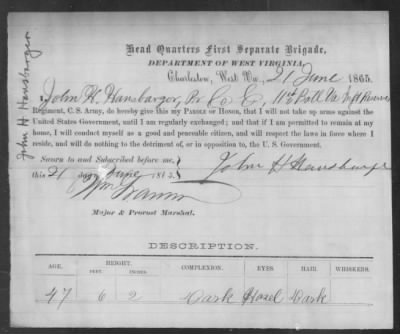 John H Hansbarger
Head Quarters First Separate Brigade,
DEPARTMENT OF WEST VIRGINIA,
Charleston, West Va., 21 June 1865.
I, John H. Hansbarger, Pr Co E, 11th Batt Va Inft Reserves
Regiment, C. S. Army, do hereby give this my PAROLE OF HONOR, that I will not take up arms against the
United States Government, until I am regularly exchanged; and that if I am permitted to remain at my
home, I will conduct myself as a good and peaceable citizen, and will respect the laws in force where I
reside, and will do nothing to the detriment of, or in opposition to, the U. S. Government.
Sworn to and Subscribed before me,
this 21 day June 1865.
John H Hansbarger
Wm
Major & Provost Marshal.
DESCRIPTION.
AGE. HEIGHT. COMPLEXION. EYES. HAIR. WHISKERS.
FEET. INCHES.
47 6 2 Dark Hazel Dark